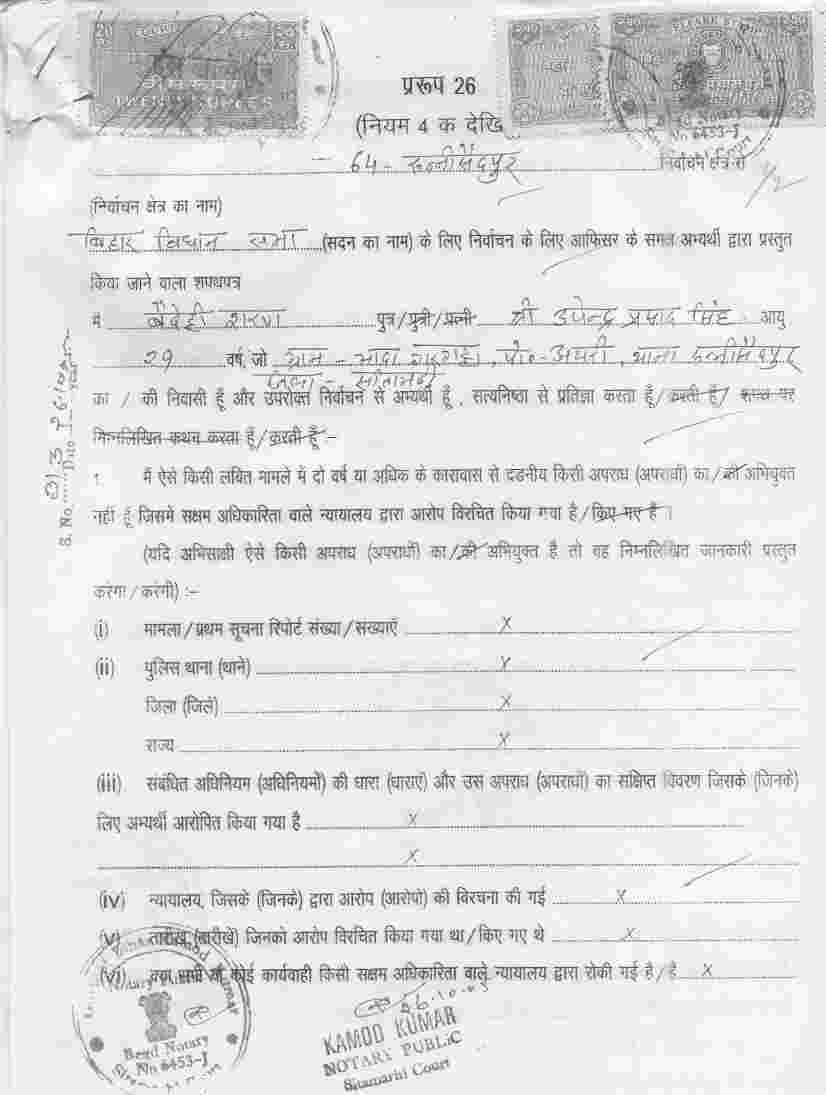 प्ररूप 26
(नियम 4 क देखि
64- रून्नीसैदपुर निर्वाचन क्षेत्र से
1/2
(निर्वाचन क्षेत्र का नाम)
बिहार विधान सभा (सदन का नाम) के लिए निर्वाचन के लिए आफिसर के समक्ष अभ्यर्थी द्वारा प्रस्तुत
किया जाने वाला शपथपत्र
मैं वैदेही शरण पुत्र/पुत्री/पत्नी श्री उपेन्द्र प्रसाद सिंह आयु
29 वर्ष, जो ग्राम - पो०- थाना रून्नीसैदपुर
जिला - सीतामढ़ी
का / की निवासी हूँ और उपरोक्त निर्वाचन से अभ्यर्थी हूँ, सत्यनिष्ठा से प्रतिज्ञा करता हूँ/करती हूँ/ शपथ पर
निम्नलिखित कथन करता हूँ/करती हूँ:-
1. मैं ऐसे किसी लंबित मामले में दो वर्ष या अधिक के कारावास से दंडनीय किसी अपराध (अपराधों) का/की अभियुक्त
नहीं हूँ जिसमें सक्षम अधिकारिता वाले न्यायालय द्वारा आरोप विरचित किया गया है/किए गए है।
(यदि अभिसाक्षी ऐसे किसी अपराध (अपराधों) का/की अभियुक्त है तो वह निम्नलिखित जानकारी प्रस्तुत
करेगा/करेगी):-
(i) मामला/प्रथम सूचना रिपोर्ट संख्या/संख्याएँ X
(ii) पुलिस थाना (थाने) X
जिला (जिले) X
राज्य X
(iii) संबंधित अधिनियम (अधिनियमों) की धारा (धाराएं) और उस अपराध (अपराधों) का संक्षिप्त विवरण जिसके (जिनके)
लिए अभ्यर्थी आरोपित किया गया है X
X
(iv) न्यायालय, जिसके (जिनके) द्वारा आरोप (आरोपो) की विरचना की गई X
(v) तारीख (तारीखें) जिनको आरोप विरचित किया गया था/किए गए थे X
(vi) क्या सभी या कोई कार्यवाही किसी सक्षम अधिकारिता वाले न्यायालय द्वारा रोकी गई है/है X
26-10-05
KAMOD KUMAR
NOTARY PUBLIC
Sitamarhi Court
Regd Notary
No 6453-J
TWENTY RUPEES
Regd Notary
No 6453-J
S. No. Date